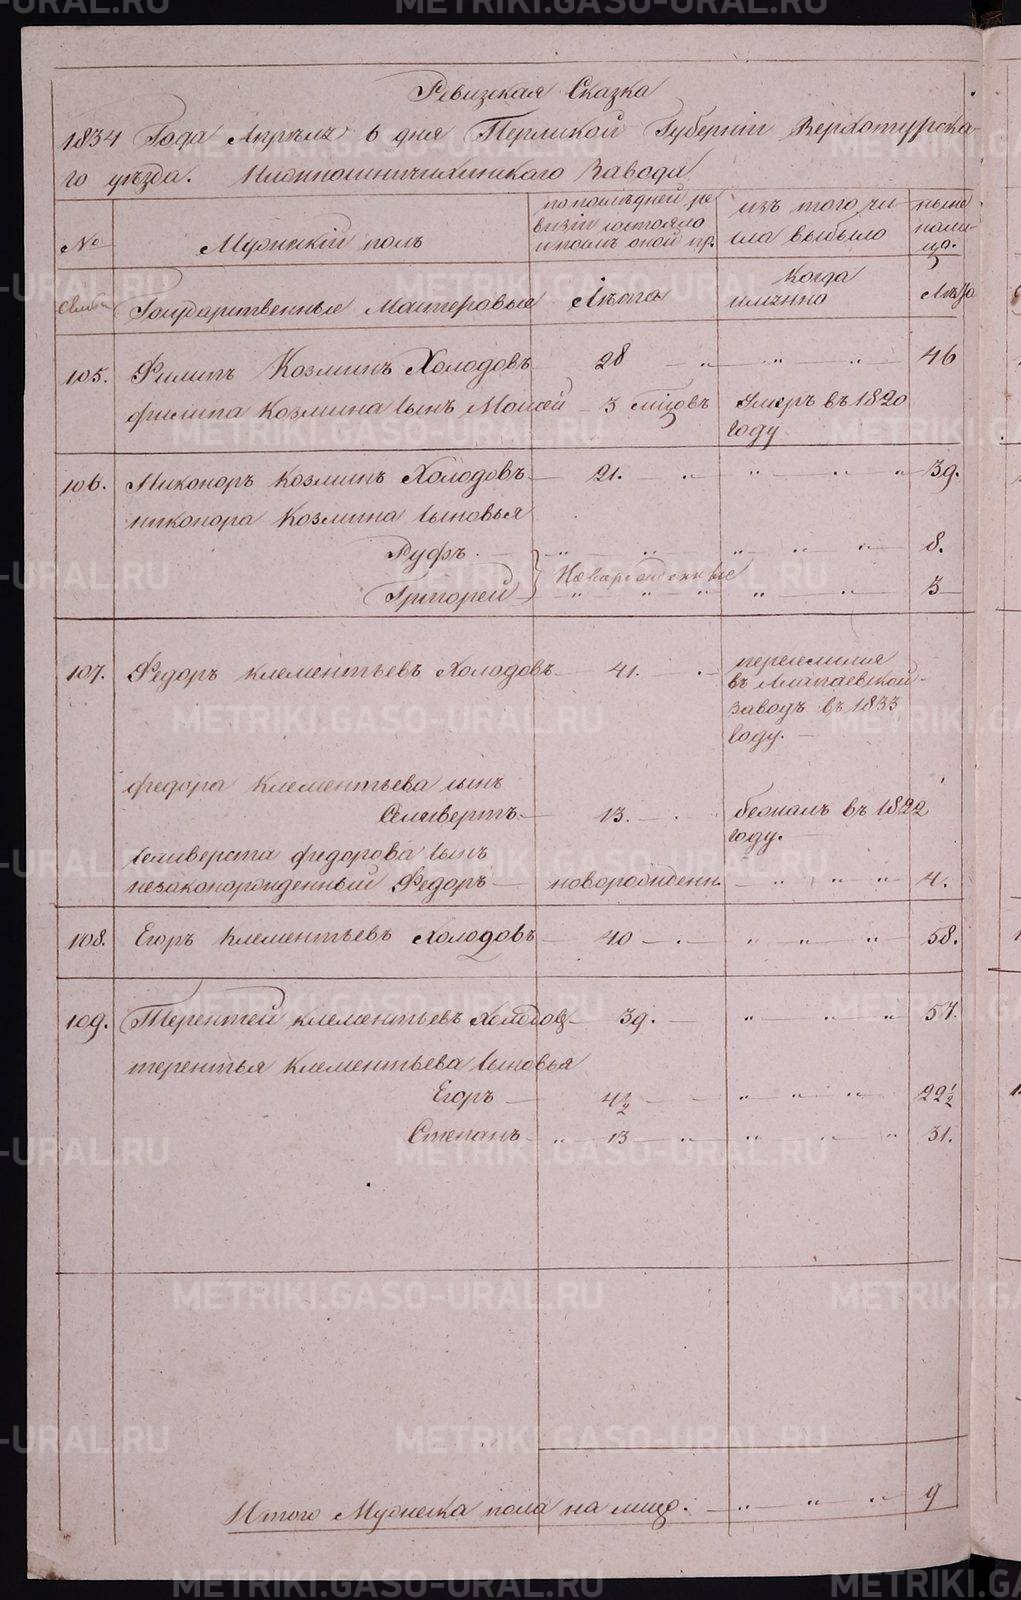 Ревизская Сказка
1834 Года Апрѣля 6 дня Пермской Губерніи Верхотурска-
го уѣзда. Завода
№ Мужескій полъ по последней ре-
визіи состояло
и послѣ оной пр. изъ того чи-
сла выбыло ныне
нали-
цо.
Государственные Мастеровые Лѣта Когда
имянно Лѣта
105. Филипъ Козминъ Холодовъ 28 " " " 46
филипа Козмина сынъ Моисей 3 мѣсцовъ Умеръ въ 1820
году
106. Никоноръ Козминъ Холодовъ 21. " " " " 39.
никонора Козмина сыновья
Руфъ. " " " " " 8.
Григорей Новарожденные " " " " " 3
107. Федоръ Клементьевъ Холодовъ 41. переселился
въ Алапаевской
Заводъ въ 1833
году.
федора Клементьева сынъ
Селиверстъ 13. бежалъ въ 1822
году.
селиверста федорова сынъ
незаконорожденный Федоръ новорожденн. " " " 4.
108. Егоръ Клементьевъ Холодовъ 40 " " " 58.
109. Терентей клементьевъ Холодов 39. " " " 57.
терентья Клементьева сыновья
Егоръ 4½ " " " 22½
Степанъ " 13 " " " " 31.
Итого Мужеска пола на лицо. " " " 9
METRIKI.GASO-URAL.RU